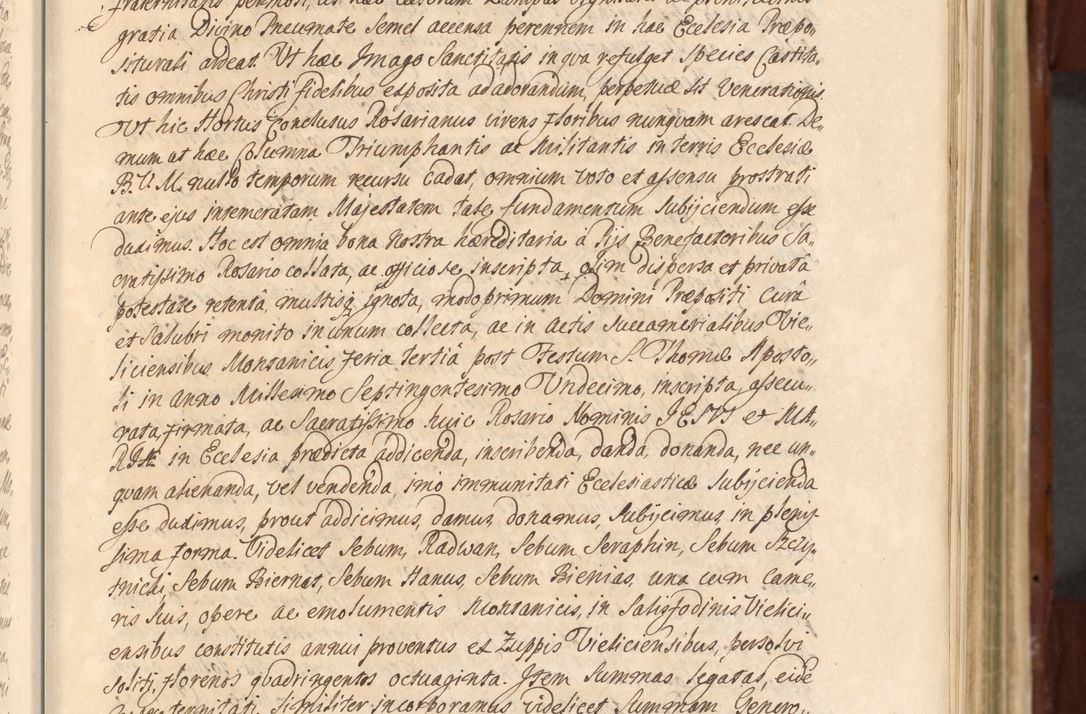 gratia Divino Pneumate semel accensa perennem in hac Ecclesia Præpo„
siturali ardeat. Ut hæc Imago Sanctitatis in qva refulget species Castita„
tis omnibus Christi fidelibus exposita ad adorandum, perpetuæ sit venerationis
Ut hic Hortus Conclusus Rosarianus vivens floribus nunqvam arescat. De„
mum at hæc Columna Triumphantis ac Militantis in terris Ecclesiæ
B. V. M. nullo temporum recursu cadat, omnium voto et assensu prostrati
ante ejus intemeratam Majestatem tale fundamentum subijciendum esse
duximus. Hoc est omnia bona nostra hæreditaria à Pijs Benefactoribus Sa„
cratissimo Rosario collata, ac officiose inscripta, olim dispersa et privatâ
potestate retentâ, multisq ignota, modo primum Domini Præpositi curâ
et salubri monito in unum collecta, ac in Actis Succamerialibus Vie„
liciensibus Montanicis feria tertiâ post Festum S. Thomæ Aposto„
li in anno Millesimo Septingentesimo Undecimo, inscripta, assecu„
rata, firmata, ac Sacratissimo huic Rosario Nominis JESU et MA„
RIÆ in Ecclesia prædicta addicenda, inscribenda, danda, donanda, nec un„
qvam alienanda, vel vendenda, imo immunitati Ecclesiasticæ subijcienda
esse duximus, prout addicimus, damus, donamus, subijcimus, in plenis„
sima forma. Videlicet Sebum, Radwan, Sebum Seraphin, Sebum Szczy„
tnicki, Sebum Biernat, Sebum Hanus, Sebum Bienias, una cum Came„
ris suis, opere ac emolumentis Montanicis, in Salisfodinis Vielici„
ensibus constitutis annui proventus ex Zuppis Vieliciensibus, persolvi
soliti, florenos qvadringentos octuaginta. Item Summas legatas, eidē
similiter incorporamus videlicet Summam Genero„